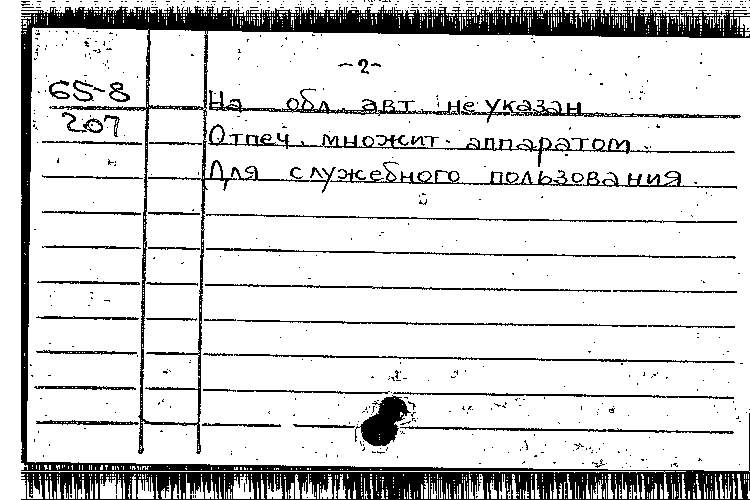 -2-
65-8
207
На обл. авт. не указан
Отпеч. множит. аппаратом.
Для служебного пользования.